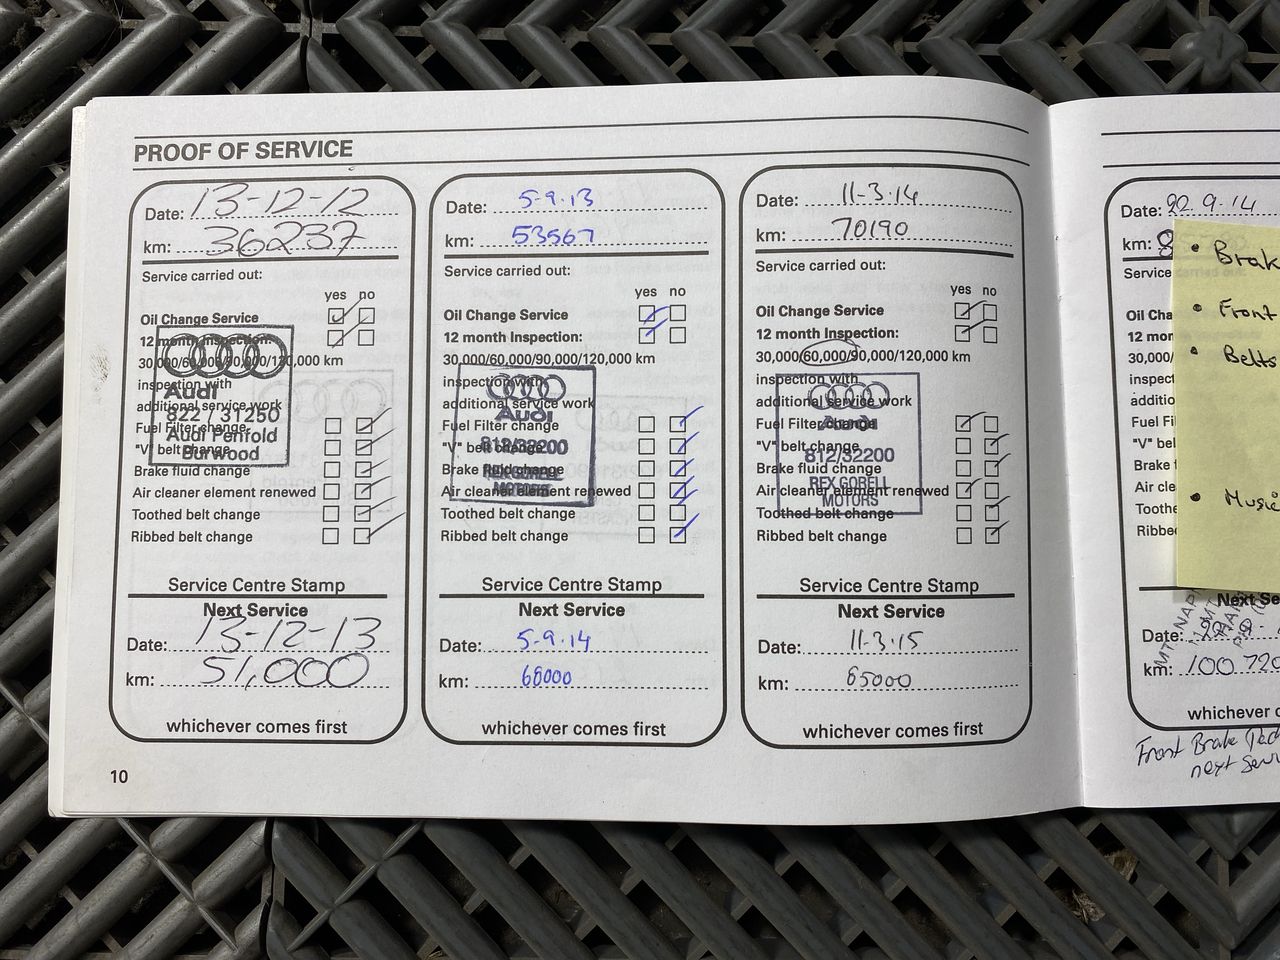 PROOF OF SERVICE
Date: 13-12-12
km: 36237
Service carried out:
yes no
Oil Change Service
12 month Inspection:
30,000/60,000/90,000/120,000 km
inspection with
additional service work
Fuel Filter change
"V" belt change
Brake fluid change
Air cleaner element renewed
Toothed belt change
Ribbed belt change
Audi
822 / 31250
Audi Penfold
Burwood
Service Centre Stamp
Next Service
Date: 13-12-13
km: 51,000
whichever comes first
10
Date: 5-9-13
km: 53567
Service carried out:
yes no
Oil Change Service
12 month Inspection:
30,000/60,000/90,000/120,000 km
inspection with
additional service work
Fuel Filter change
"V" belt change
Brake fluid change
Air cleaner element renewed
Toothed belt change
Ribbed belt change
Audi
812/32200
REX GORELL
MOTORS
Service Centre Stamp
Next Service
Date: 5-9-14
km: 68000
whichever comes first
Date: 11-3-14
km: 70190
Service carried out:
yes no
Oil Change Service
12 month Inspection:
30,000/60,000/90,000/120,000 km
inspection with
additional service work
Fuel Filter change
"V" belt change
Brake fluid change
Air cleaner element renewed
Toothed belt change
Ribbed belt change
Audi
812/32200
REX GORELL
MOTORS
Service Centre Stamp
Next Service
Date: 11-3-15
km: 85000
whichever comes first
Date: 22.9.14
km:
Service carried out:
Oil Cha
12 mon
30,000/
inspect
additio
Fuel Fi
"V" bel
Brake f
Air cle
Toothe
Ribbe
• Brak
• Front
• Belts
• Music
Next Se
Date:
km: 100 720
whichever c
Front Brake Pad
next Serv